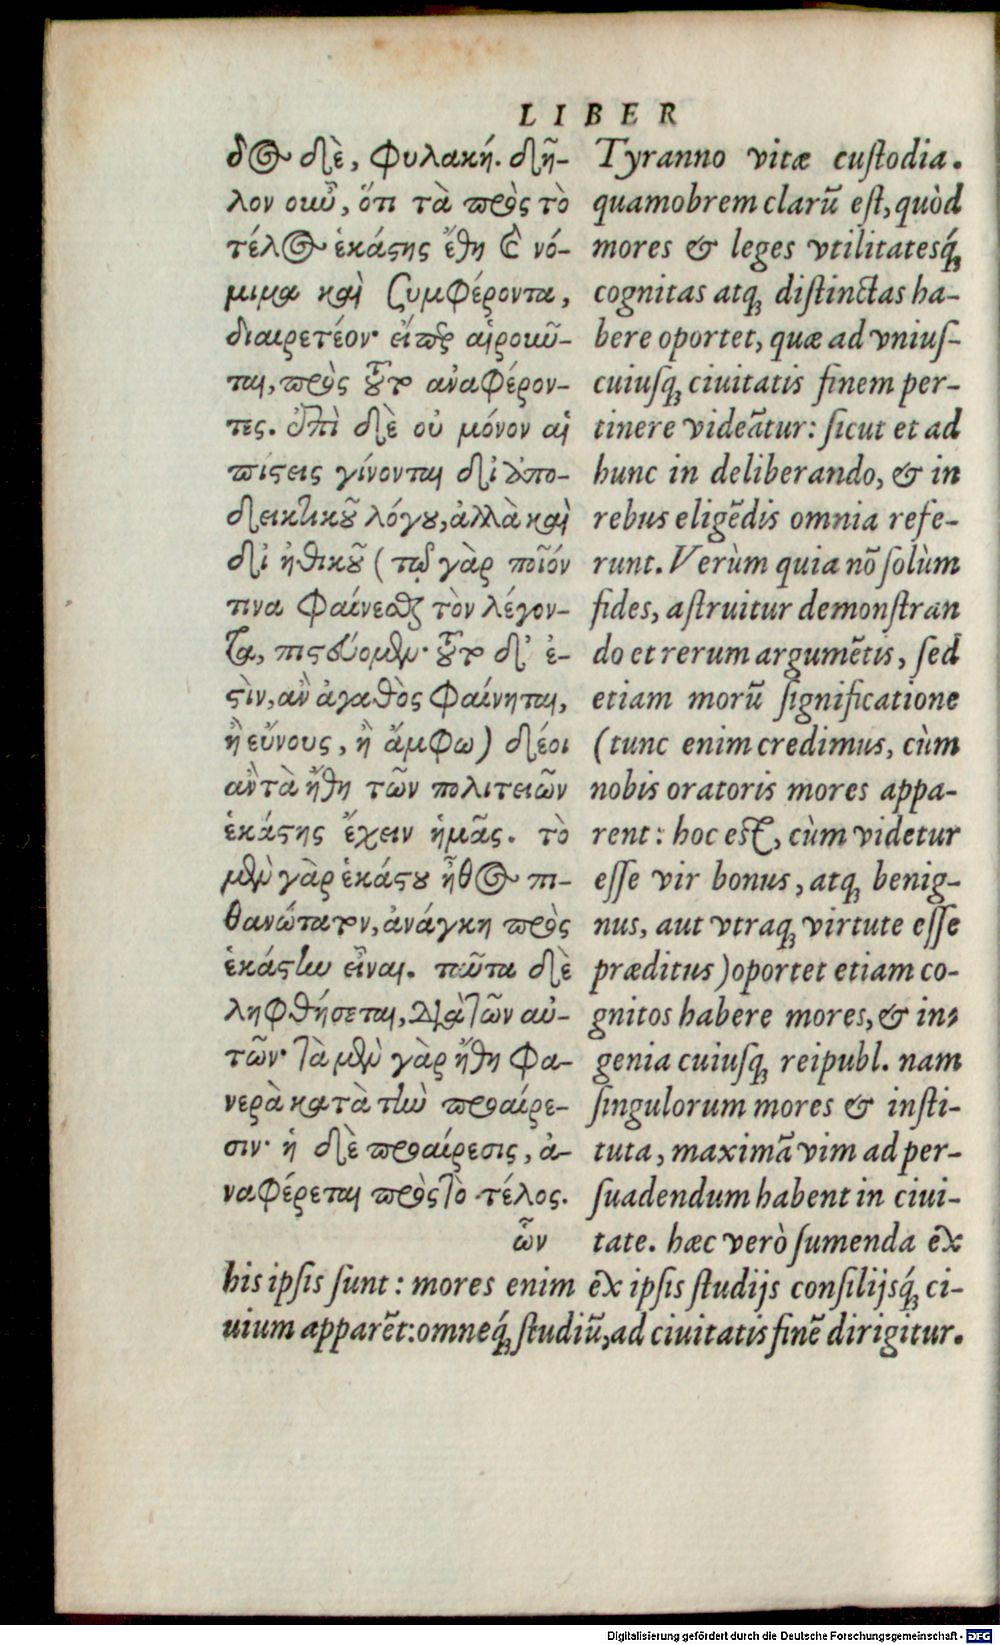 LIBER
δος δὲ, φυλακή. δῆ-
λον οὖν, ὅτι τὰ πρὸς τὸ
τέλος ἑκάστης ἔθη καὶ νό-
μιμα καὶ συμφέροντα,
διαιρετέον· εἴπερ αἱροῦν-
ται, πρὸς τοῦτο ἀναφέρον-
τες. ἐπεὶ δὲ οὐ μόνον αἱ
πίστεις γίνονται δι᾽ ἀπο-
δεικτικοῦ λόγου, ἀλλὰ καὶ
δι᾽ ἠθικοῦ (τῷ γὰρ ποῖόν
τινα φαίνεσθαι τὸν λέγον-
τα, πιστεύομεν· τοῦτο δ᾽ ἐ-
στὶν, ἂν ἀγαθὸς φαίνηται,
ἢ εὔνους, ἢ ἄμφω) δέοι
ἂν τὰ ἤθη τῶν πολιτειῶν
ἑκάστης ἔχειν ἡμᾶς. τὸ
μὲν γὰρ ἑκάστου ἦθος πι-
θανώτατον, ἀνάγκη πρὸς
ἑκάστην εἶναι. ταῦτα δὲ
ληφθήσεται, διὰ τῶν αὐ-
τῶν· τὰ μὲν γὰρ ἤθη φα-
νερὰ κατὰ τὴν προαίρε-
σιν· ἡ δὲ προαίρεσις, ἀ-
ναφέρεται πρὸς τὸ τέλος.
ὧν
Tyranno vitæ custodia.
quamobrem clarũ est, quòd
mores & leges vtilitatesq́;
cognitas atq; distinctas ha-
bere oportet, quæ ad vnius-
cuiusq; ciuitatis finem per-
tinere videãtur: sicut et ad
hunc in deliberando, & in
rebus eligẽdis omnia refe-
runt. Verùm quia nõ solùm
fides, astruitur demonstran
do et rerum argumẽtis, sed
etiam morũ significatione
(tunc enim credimus, cùm
nobis oratoris mores appa-
rent: hoc est, cùm videtur
esse vir bonus, atq; benig-
nus, aut vtraq; virtute esse
præditus) oportet etiam co-
gnitos habere mores, & in-
genia cuiusq; reipubl. nam
singulorum mores & insti-
tuta, maximã vim ad per-
suadendum habent in ciui-
tate. hæc verò sumenda ex
his ipsis sunt: mores enim ex ipsis studijs consilijsq́; ci-
uium apparẽt: omneq́; studiũ, ad ciuitatis finẽ dirigitur.
Digitalisierung gefördert durch die Deutsche Forschungsgemeinschaft - DFG